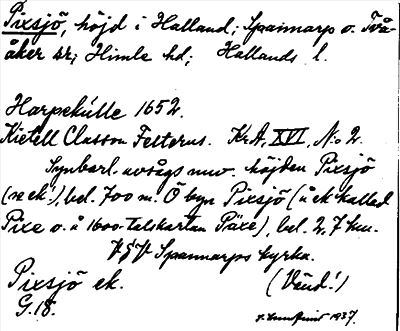 Pixsjö, höjd i Halland; Spannarp o. Två-
åker sr; Himle hd; Hallands l.
Harpekulle 1652.
Kietell Classon Felterus. KrA, XVI, N:o 2.
Synbarl. avsågs nuv. höjden Pixsjö
(se ek.!), bel. 700 m. Ö byn Pixsjö (å ek kallad
Pixe o. å 1600-talskartan Päxe), bel. 2,7 km.
VSV Spannarps kyrka.
Pixsjö ek. (Vänd!)
G.18. 1937.